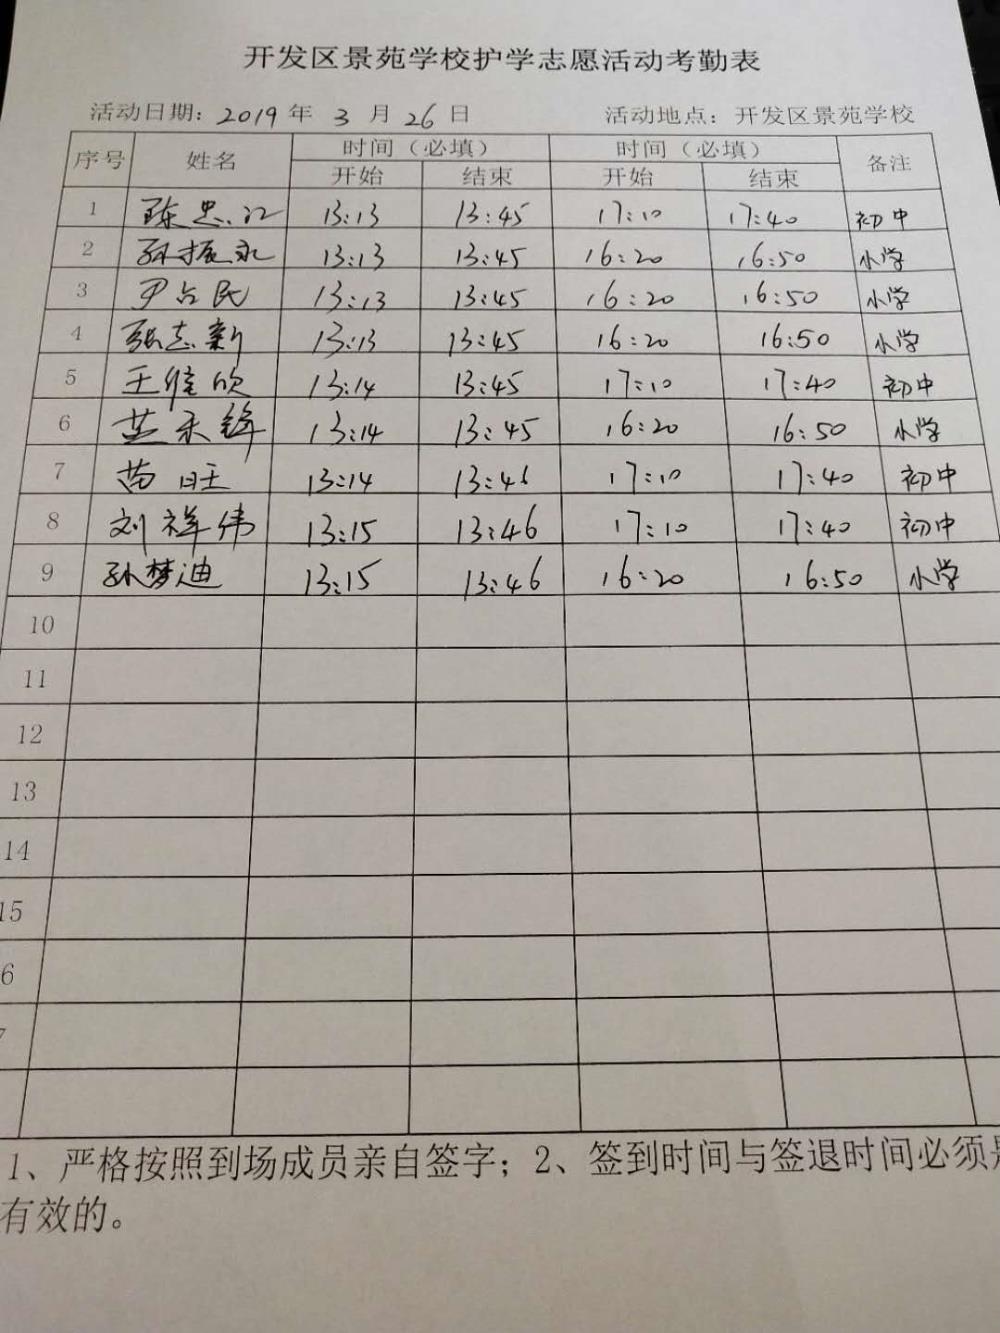 开发区景苑学校护学志愿活动考勤表
活动日期: 2019 年 3 月 26 日 活动地点: 开发区景苑学校
序号 姓名 时间（必填） 时间（必填） 备注
开始 结束 开始 结束
1 陈忠江 13:13 13:45 17:10 17:40 初中
2 孙振永 13:13 13:45 16:20 16:50 小学
3 尹占民 13:13 13:45 16:20 16:50 小学
4 张志新 13:13 13:45 16:20 16:50 小学
5 王健欣 13:14 13:45 17:10 17:40 初中
6 13:14 13:45 16:20 16:50 小学
7 苗旺 13:14 13:46 17:10 17:40 初中
8 刘祥伟 13:15 13:46 17:10 17:40 初中
9 孙梦迪 13:15 13:46 16:20 16:50 小学
10
11
12
13
14
15
6
7
1、严格按照到场成员亲自签字；2、签到时间与签退时间必须是
有效的。